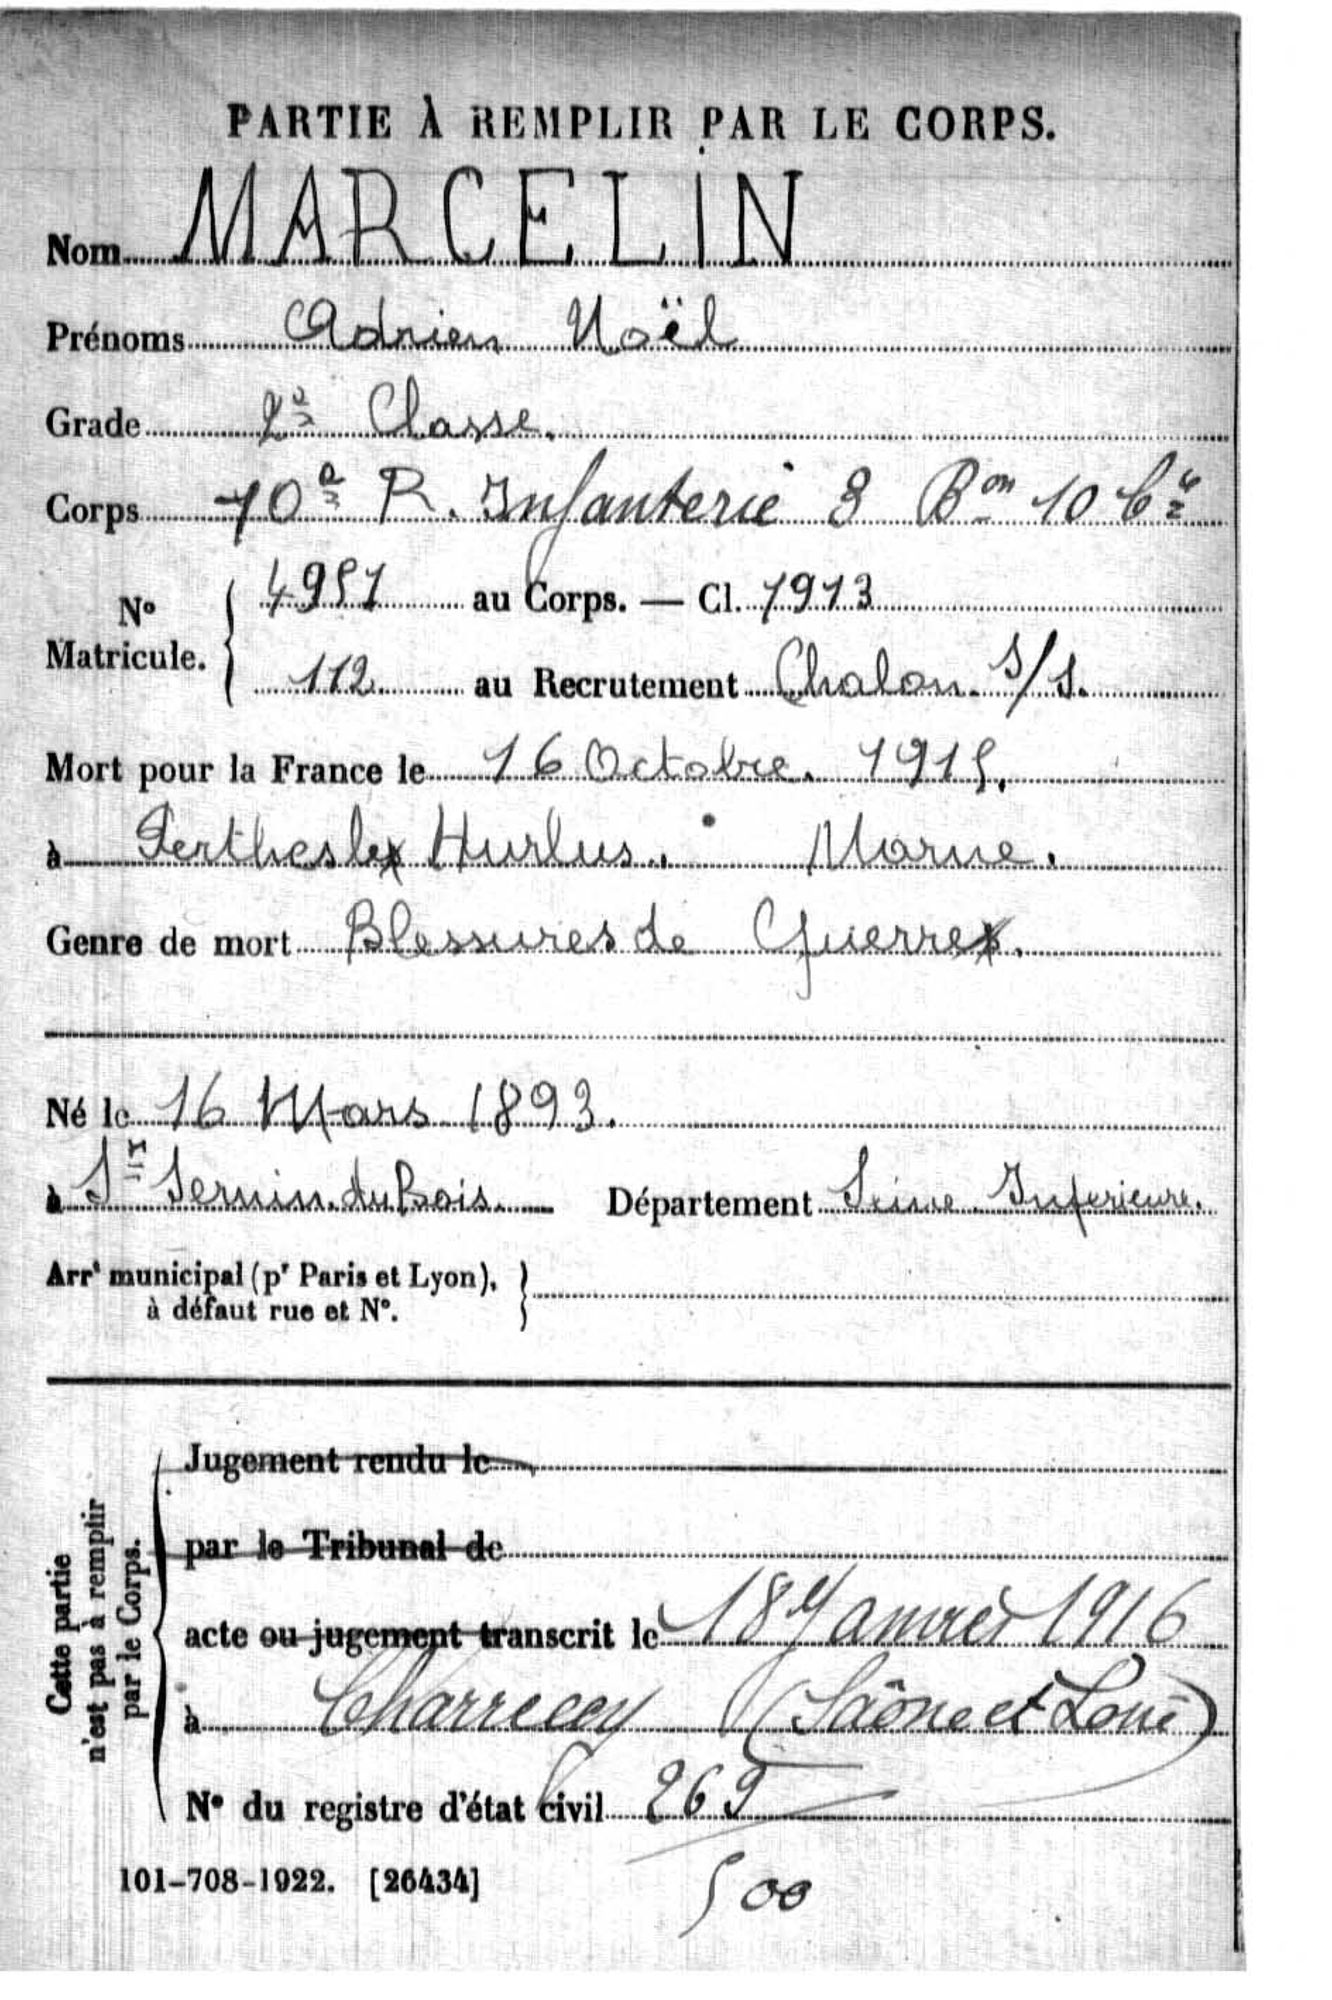 PARTIE À REMPLIR PAR LE CORPS.
Nom MARCELIN
Prénoms Adrien Noël
Grade 2e Classe.
Corps 10e R. Infanterie 3 Bon 10 Cie
No Matricule. 4951 au Corps. — Cl. 1913
112 au Recrutement Chalon s/s.
Mort pour la France le 16 Octobre. 1915.
à Perthes les Hurlus. Marne.
Genre de mort Blessures de Guerre.
Né le 16 Mars 1893.
à St Sernin du Bois. Département Seine Inferieure.
Arrt municipal (pr Paris et Lyon),
à défaut rue et No.
Cette partie
n'est pas à remplir
par le Corps.
Jugement rendu le
par le Tribunal de
acte ou jugement transcrit le 18 Janvier 1916
à Charrecey (Saône et Loire)
No du registre d'état civil 269
101-708-1922. [26434]
500